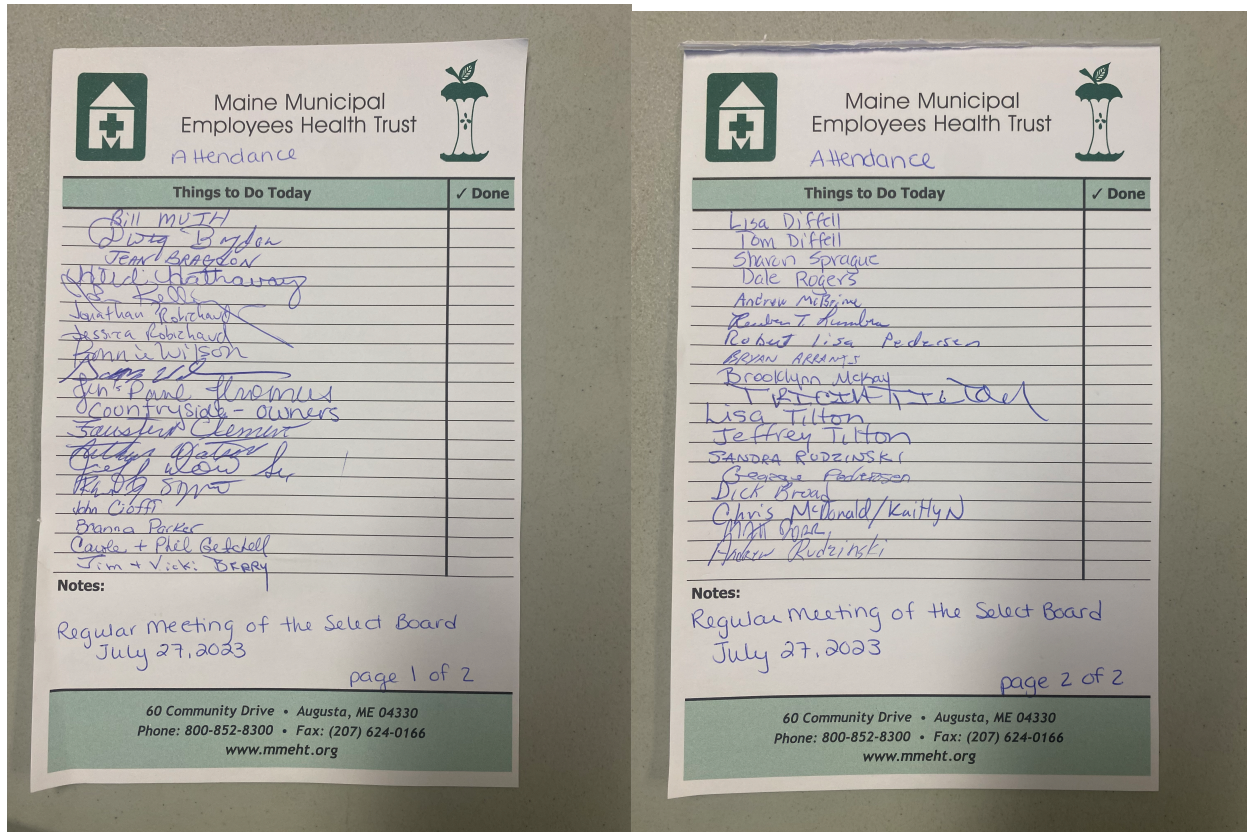 Maine Municipal
Employees Health Trust
Attendance
Things to Do Today ✓ Done
Bill MUTH
JEAN BRAGDON
Hathaway
Kelly
Jonathan Robichaud
Jessica Robichaud
Bonnie Wilson
Jen & Paul Thomas
Countryside - owners
Clement
Arthur Watson
Geoff Wow Sr.
John Cioffi
Branna Parker
Carole + Phil Getchell
Jim + Vicki BERRY
Notes:
Regular Meeting of the Select Board
July 27, 2023
page 1 of 2
60 Community Drive • Augusta, ME 04330
Phone: 800-852-8300 • Fax: (207) 624-0166
www.mmeht.org
Maine Municipal
Employees Health Trust
Attendance
Things to Do Today ✓ Done
Lisa Diffell
Tom Diffell
Sharon Sprague
Dale Rogers
Andrew McBrine
Reuben T.
Robert Lisa Pedersen
BRYAN ARRANTS
Brooklynn McKay
TRICIA
Lisa Tilton
Jeffrey Tilton
SANDRA RUDZINSKI
George Pedersen
Dick Broad
Chris McDonald/KaitlyN
Andrew Rudzinski
Notes:
Regular Meeting of the Select Board
July 27, 2023
page 2 of 2
60 Community Drive • Augusta, ME 04330
Phone: 800-852-8300 • Fax: (207) 624-0166
www.mmeht.org